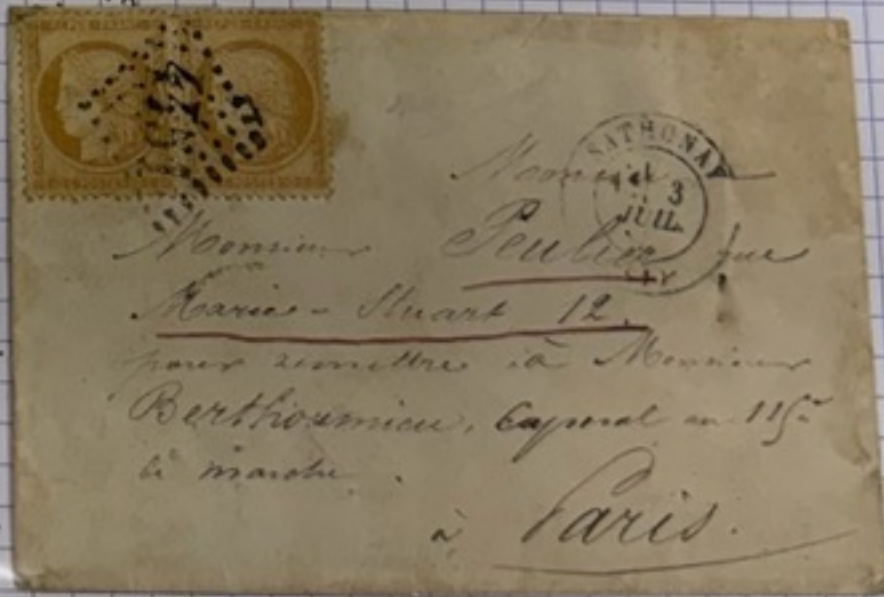 SATHONAY
3
JUIL.
Monsieur
Monsieur Peulier rue
Marie-Stuart 12.
pour remettre à Monsieur
Berthoumieu, Caporal au 115e
de marche.
à Paris.